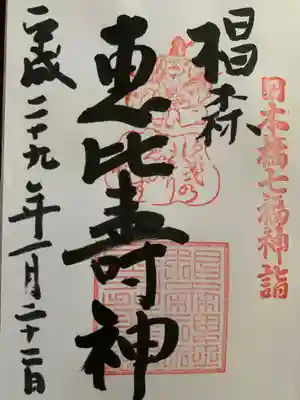 日本橋七福神詣
椙森
恵比寿神
平成二十九年一月二十二日